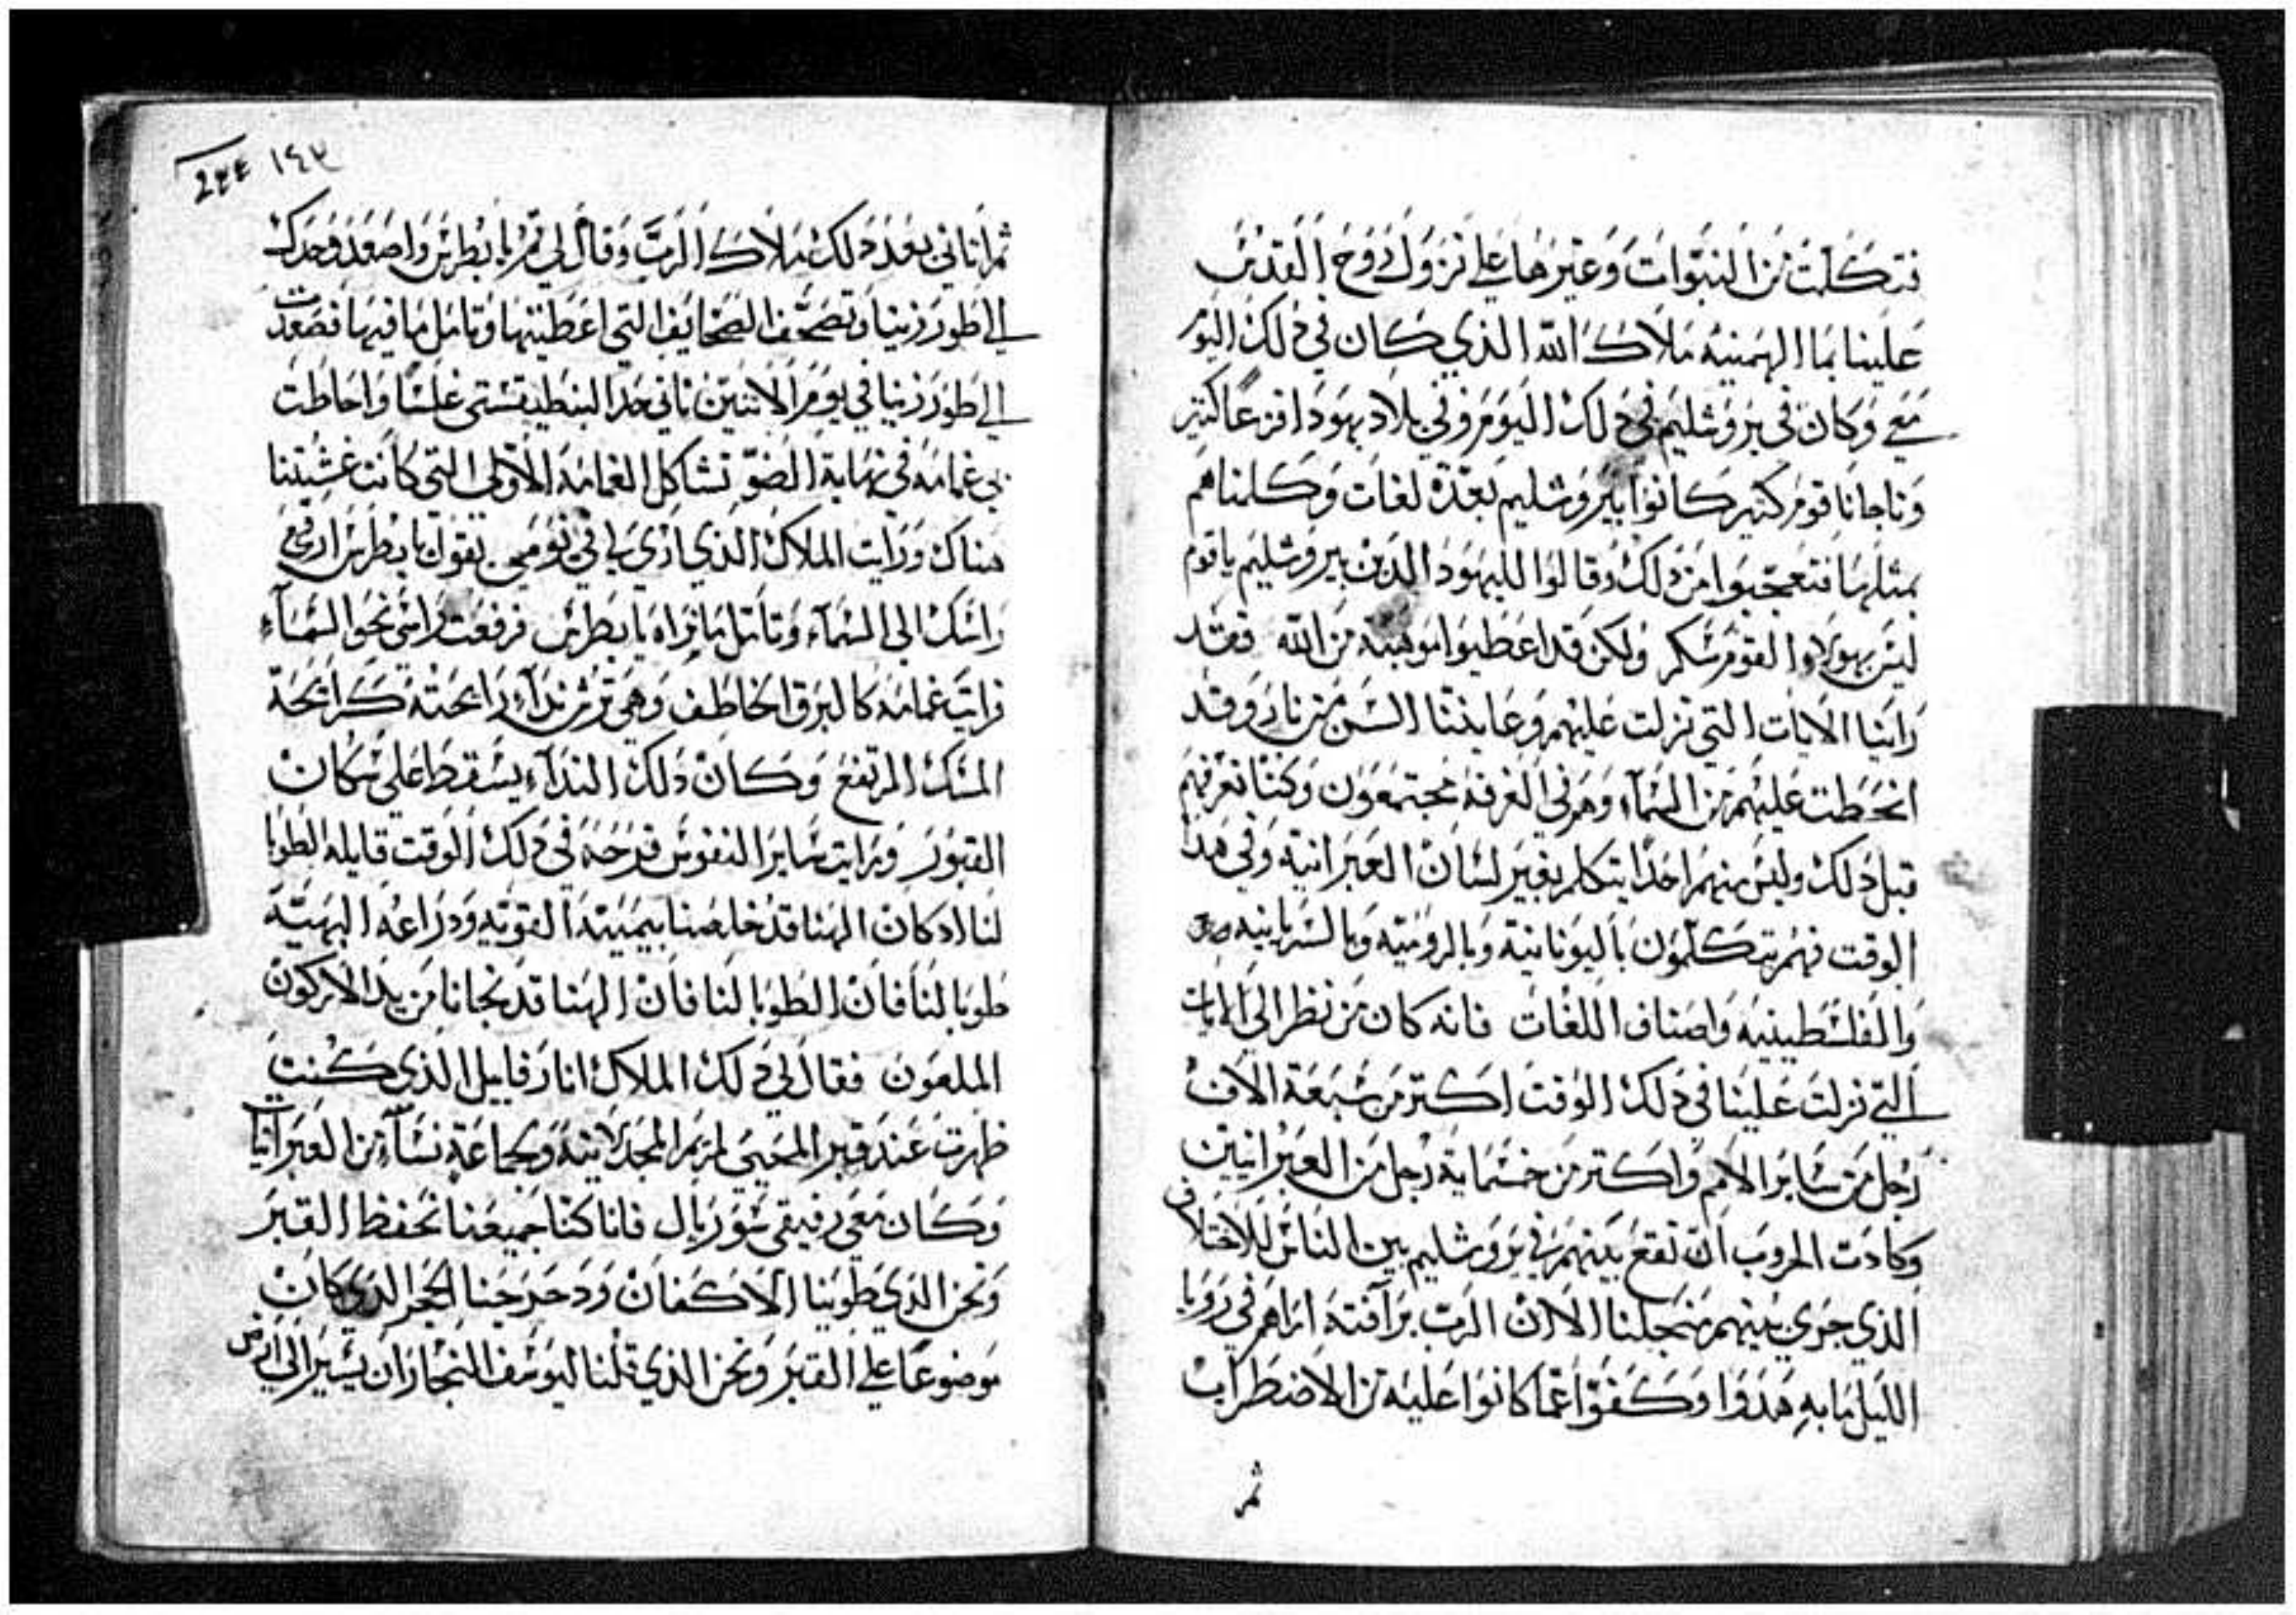 فتكلمت من النبوات وغيرها على نزول روح القدس
علينا بما الهمنيه ملاك الله الذي كان في ذلك اليوم
معي وكان في يروشليم في ذلك اليوم وفي بلاد يهودا فزعا كثير
وناجانا قوم كثير كانوا بيروشليم بعدة لغات وكلمناهم
بمثلها فتعجبوا من ذلك وقالوا لليهود الذين بيروشليم ياقوم
ليس بهولاوا القوم سكر ولكن قد اعطيوا موهبة من الله فقد
راينا الايات التي نزلت عليهم وعايننا السن من نار وقد
انحطت عليهم من السماء وهم في الغرفة مجتمعون وكنا نعرفهم
قبل ذلك وليس منهم احدا يتكلم بغير لسان العبرانية وفي هذا
الوقت فهم يتكلمون باليونانية وبالرومية وبالسريانيه
والفلسطينيه واصناف اللغات فانه كان من نظر الى الايات
التي نزلت علينا في ذلك الوقت اكتر من سبعة الاف
رجل من ساير الامم واكتر من خمسماية رجل من العبرانيين
وكادت الحروب ان تقع بينهم في يروشليم بين الناس للاختلاف
الذي جرى بينهم من جلنا الا ان الرب برآفته اراهم في رويا
الليل مابه هدوا وكفوا عما كانوا عليه من الاضطراب
ثم
١٤٣
ثم اتاني بعد ذلك ملاك الرب وقال لي قم يا بطرس واصعد وحدك
الى طور زيتا وتصحف الصحايف التي اعطيتها وتامل ما فيها فصعدت
الى طور زيتا في يوم الاتنين تاني حد البنطيقستي غلسا واحاطت
بي غمامة في نهاية الضو تشاكل الغمامة الاولى التي كانت غشيتنا
هناك ورايت الملاك الذي في نومي يقول يا بطرس ارفع
راسك الى السماء وتامل ما تراه يا بطرس فرفعت راسي نحو السماء
فرايت غمامة كالبرق الخاطف وهي ترش نداء رايحته كرايحة
المسك المرتفع وكان ذلك النداء يسقط على سكان
القبور ورايت ساير النفوس فرحة في ذلك الوقت قايله الطوبا
لنا اذ كان الهنا قد خلصنا بيمينه القويه وذراعه البهية
طوبا لنا فان الطوبا لنا فان الهنا قد نجانا من يد الاركون
الملعون فقال لي ذلك الملاك انا رفاييل الذي كنت
ظهرت عند قبر المحيي لمريم المجدلانية وجماعة نساء من العبرانيات
وكان معي رفيقي سوريال فانا كنا جميعنا نحفظ القبر
ونحن الذي طوينا الاكفان ودحرجنا الحجر الذي كان
موضوعا على القبر ونحن الذي قلنا ليوسف النجار ان يسير الى ارض